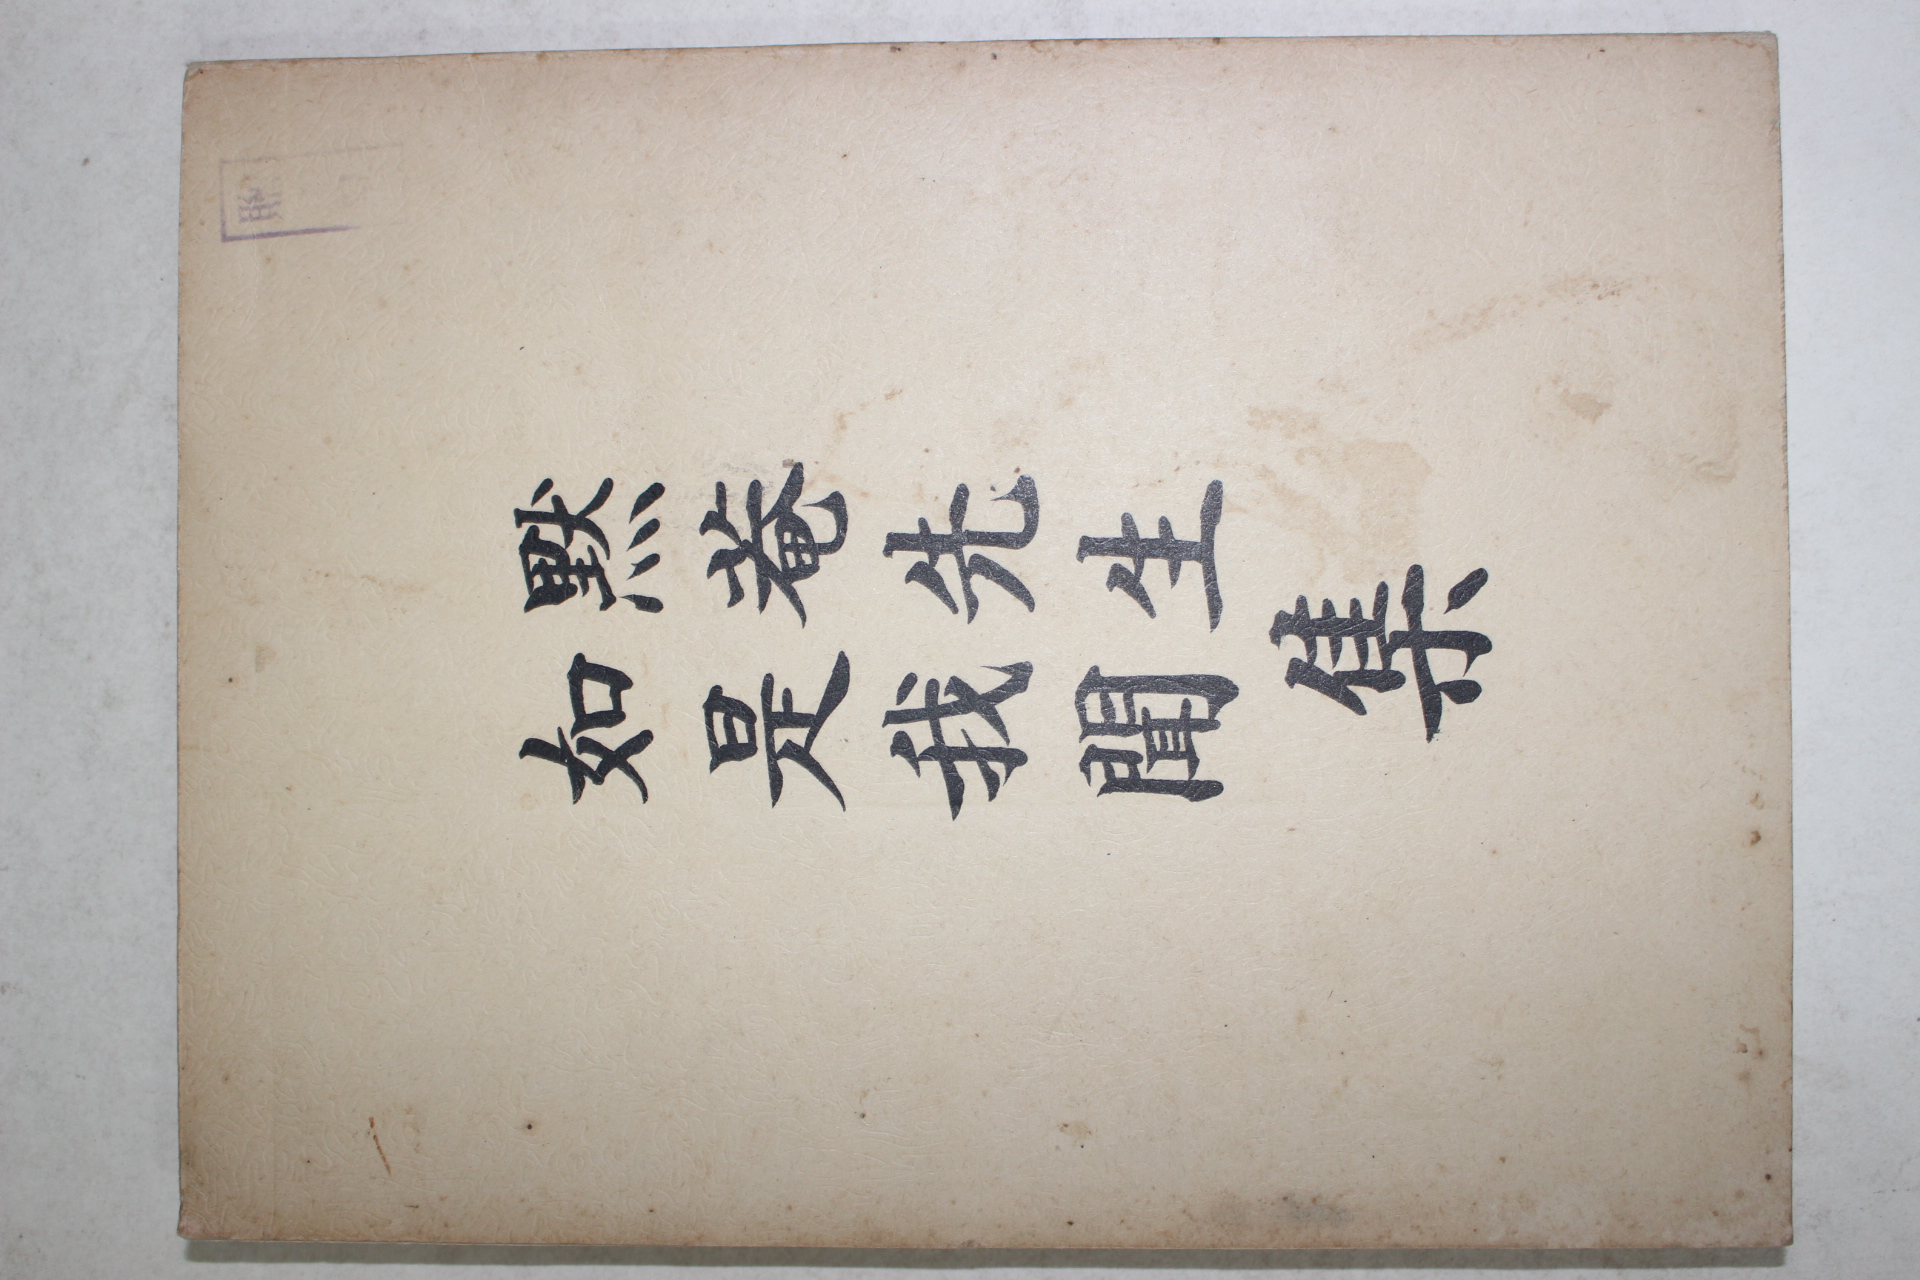 黙菴先生
如是我聞
集